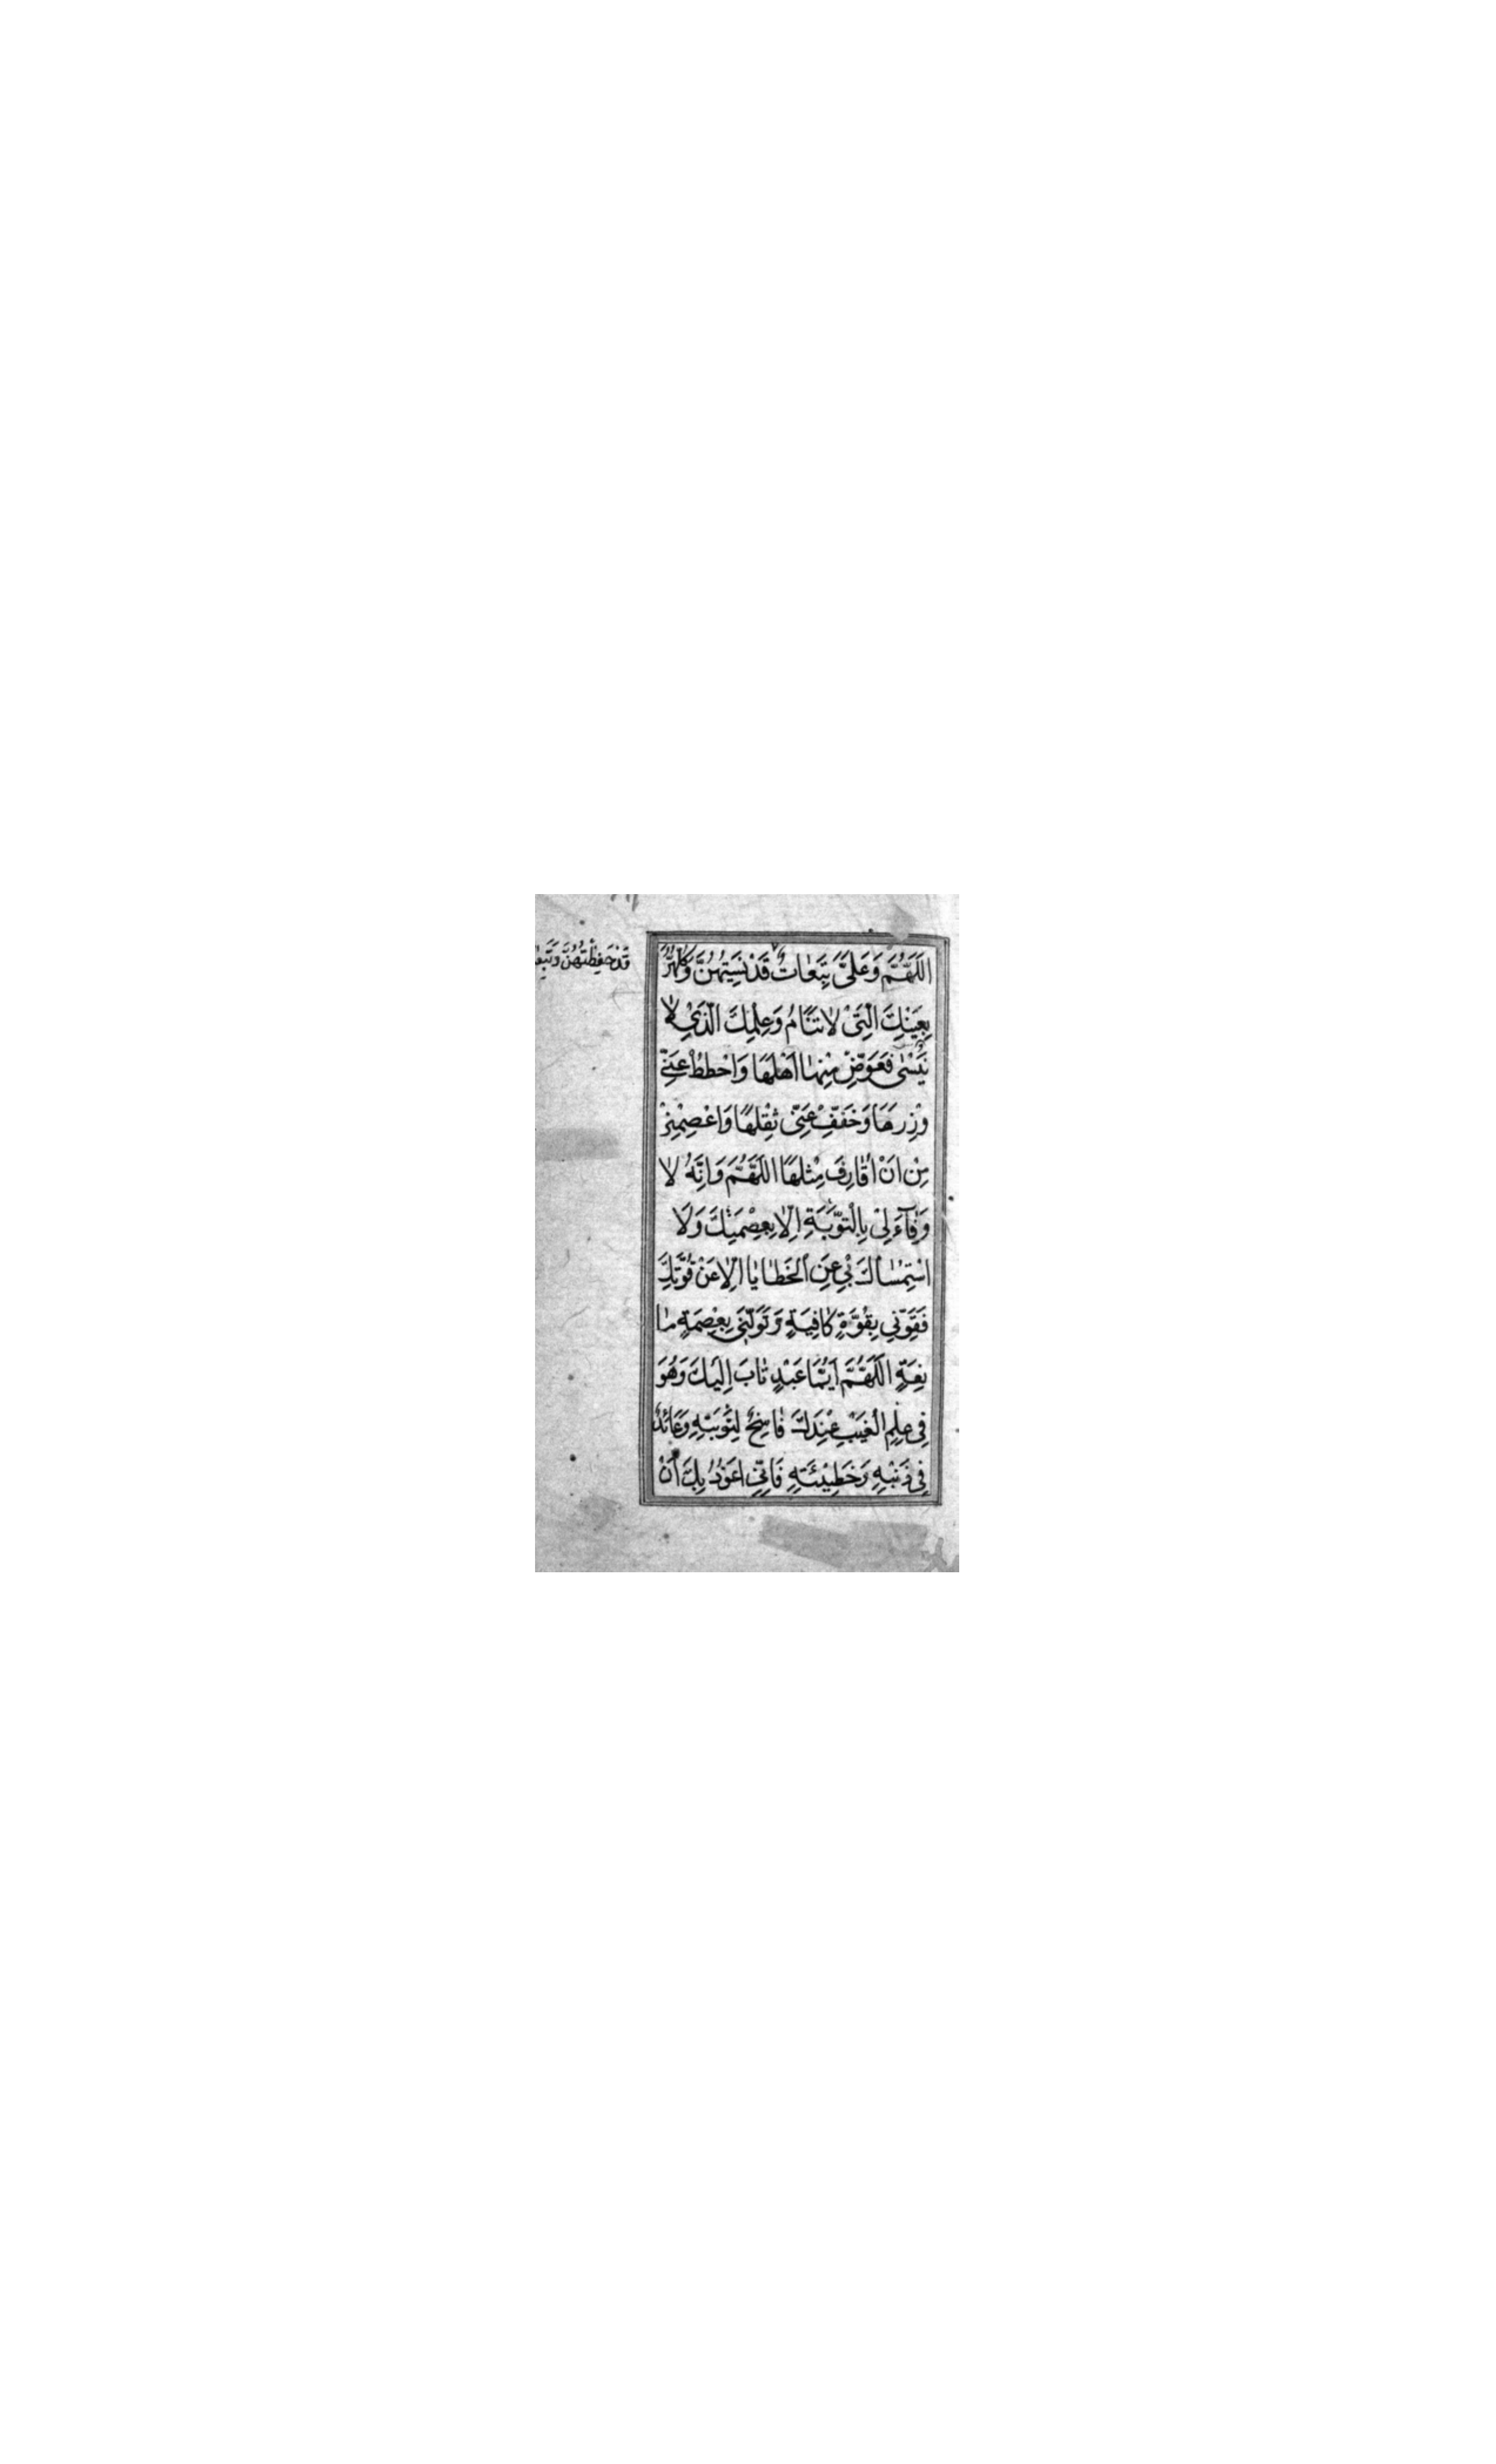 اللَّهُمَّ وَعَلَىَّ تَبِعَاتٌ قَدْ نَسِيتُهُنَّ وَكُلُّهُنَّ
قَدْ حَفِظْتُهُنَّ وَتَبِعَا
بِعَيْنِكَ الَّتِىْ لَا تَنَامُ وَعِلْمِكَ الَّذِىْ لَا
يَنْسٰى فَعَوِّضْ مِنْهَا اَهْلَهَا وَاحْطُطْ عَنِّىْ
وِزْرَهَا وَخَفِّفْ عَنِّىْ ثِقْلَهَا وَاعْصِمْنِىْ
مِنْ اَنْ اُقَارِفَ مِثْلَهَا اللَّهُمَّ وَاِنَّهُ لَا
وَفَآءَ لِىْ بِالتَّوْبَةِ اِلَّا بِعِصْمَتِكَ وَلَا
اسْتِمْسَاكَ بِىْ عَنِ الْخَطَايَا اِلَّا عَنْ قُوَّتِكَ
فَقَوِّنِى بِقُوَّةٍ كَافِيَةٍ وَتَوَلَّنِى بِعِصْمَةٍ مَا
نِعَةٍ اللَّهُمَّ اَيُّمَا عَبْدٍ تَابَ اِلَيْكَ وَهُوَ
فِى عِلْمِ الْغَيْبِ عِنْدَكَ فَاسِخٌ لِتَوْبَتِهِ وَعَائِدٌ
فِى ذَنْبِهِ وَخَطِيْئَتِهِ فَاِنِّى اَعُوْذُ بِكَ اَنْ